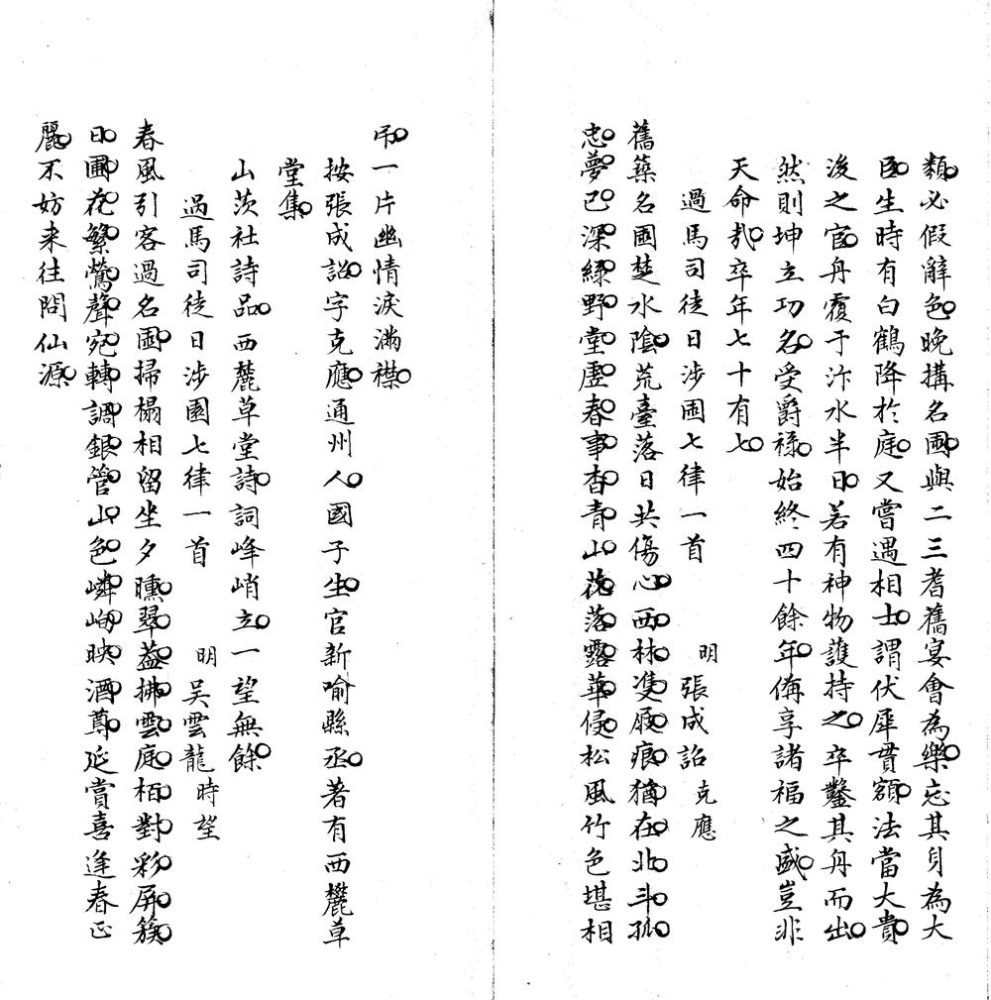 類必假辭色晚搆名園與二三耆舊宴會為樂忘其身為大
臣生時有白鶴降於庭又嘗遇相士謂伏犀貫額法當大貴
後之官舟覆于汴水半日若有神物護持之卒鑿其舟而出
然則坤立功名受爵祿始終四十餘年侮享諸福之盛豈非
天命哉卒年七十有七
過馬司徒日涉園七律一首 明張成詔克應
舊築名園楚水陰荒臺落日共傷心西林雙屐痕猶在北斗孤
忠夢已深綠野堂虛春事杳青山花落露華侵松風竹色堪相
吊一片幽情淚滿襟
按張成詔字克應通州人國子生官新喻縣丞著有西麓草
堂集
山茨社詩品西麓草堂詩詞峰峭立一望無餘
過馬司徒日涉園七律一首 明吳雲龍時望
春風引客過名園掃榻相留坐夕曛翠蓋拂雲庭栢對彩屏簇
日圃花繁鶯聲宛轉調銀管山色嶙峋映酒尊延賞喜逢春正
麗不妨来往問仙源